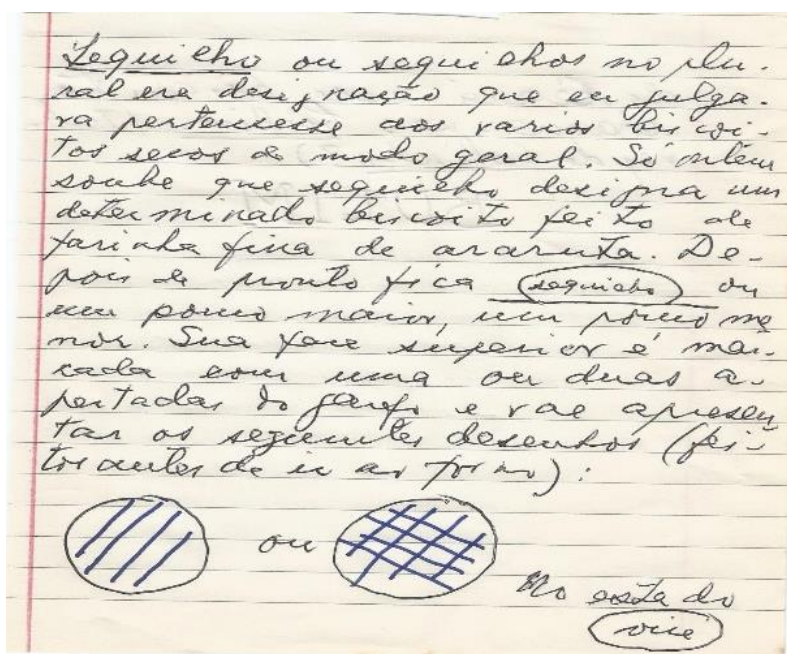 Sequilho ou sequilhos no plu-
ral era designação que eu julga-
va pertencesse aos varios biscoi-
tos secos de modo geral. Só ontem
soube que sequilho designa um
determinado biscoito feito de
farinha fina de araruta. De-
pois de pronto fica sequilho ou
um pouco maior, um pouco me
nor. Sua face superior é mar-
cada com uma ou duas a-
pertadas do garfo e vae apresen
tar os seguintes desenhos (fei-
tos antes de ir ao forno):
ou
No esta do